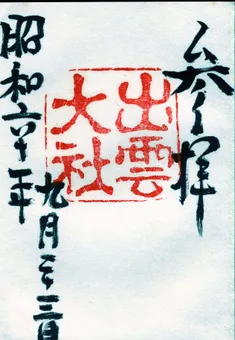 参拝
出雲
大社
昭和六十年
九月二十三日